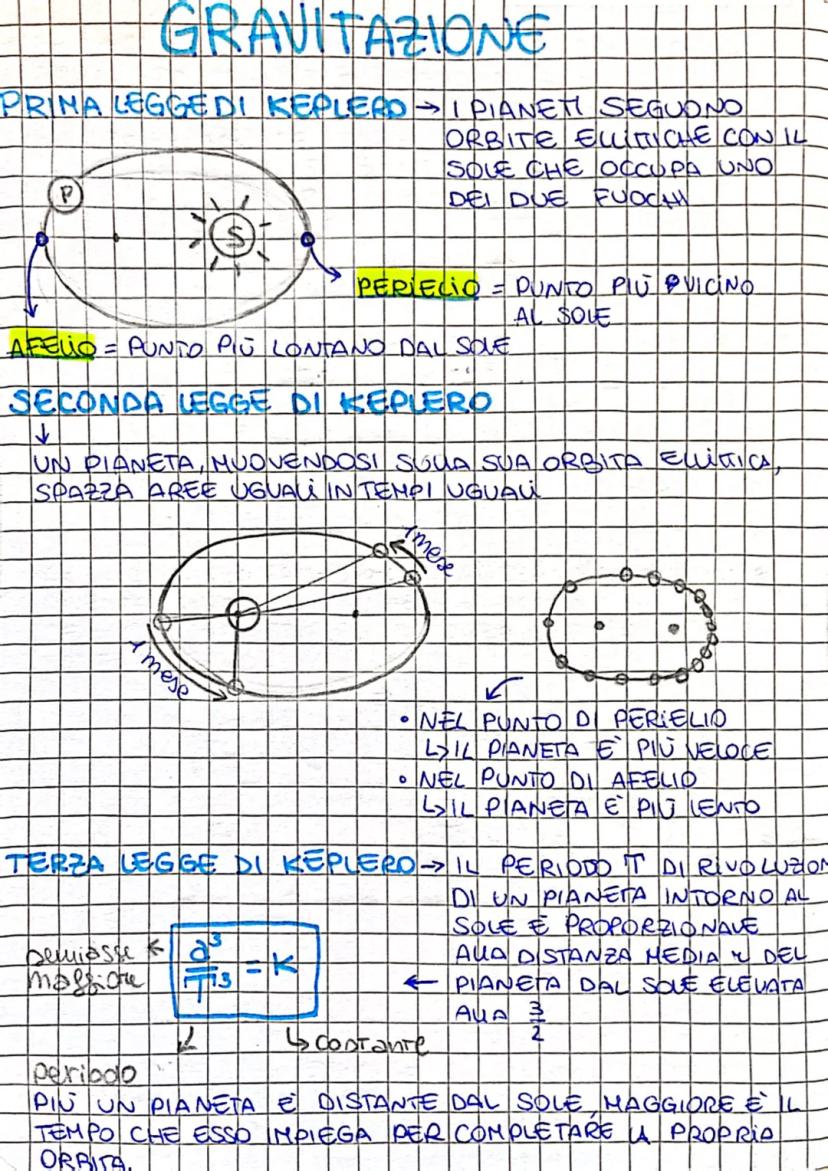 GRAVITAZIONE
PRIMA LEGGE DI KEPLERO → I PIANETI SEGUONO
ORBITE ELLITTICHE CON IL
SOLE CHE OCCUPA UNO
DEI DUE FUOCHI
P
S
PERIELIO = PUNTO PIÙ VICINO
AL SOLE
AFELIO = PUNTO PIÙ LONTANO DAL SOLE
SECONDA LEGGE DI KEPLERO
↓
UN PIANETA, MUOVENDOSI SULLA SUA ORBITA ELLITTICA,
SPAZZA AREE UGUALI IN TEMPI UGUALI
1 mese
1 mese
• NEL PUNTO DI PERIELIO
↳ IL PIANETA E' PIÙ VELOCE
• NEL PUNTO DI AFELIO
↳ IL PIANETA E' PIÙ LENTO
TERZA LEGGE DI KEPLERO → IL PERIODO T DI RIVOLUZION
DI UN PIANETA INTORNO AL
SOLE È PROPORZIONALE
ALLA DISTANZA MEDIA r DEL
PIANETA DAL SOLE ELEVATA
ALLA 3/2
semiasse
maggiore
a³/T³ = K
↳ costante
periodo
PIÙ UN PIANETA E' DISTANTE DAL SOLE, MAGGIORE E' IL
TEMPO CHE ESSO IMPIEGA PER COMPLETARE LA PROPRIA
ORBITA.